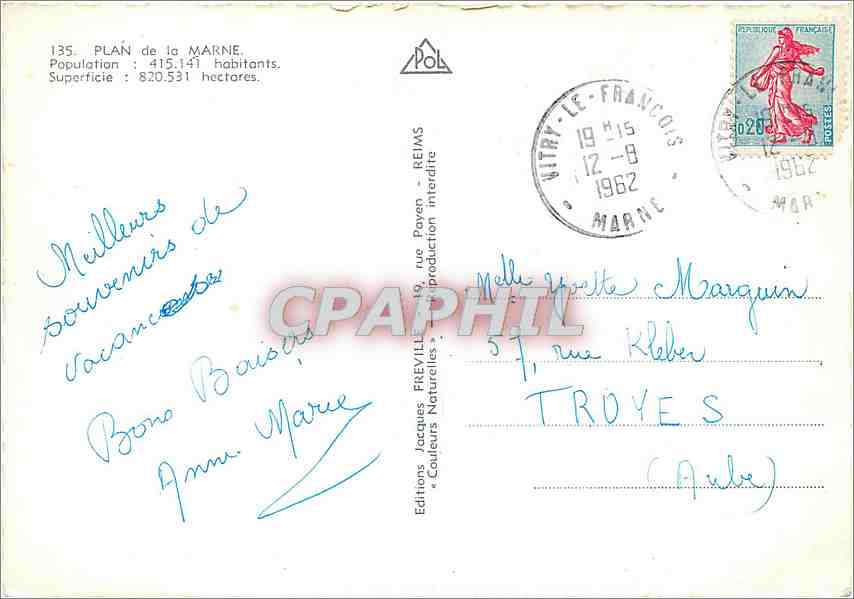 135. PLAN de la MARNE.
Population : 415.141 habitants.
Superficie : 820.531 hectares.
POL
REPUBLIQUE FRANÇAISE
0,20
POSTES
VITRY-LE-FRANCOIS
19 H 15
12 -8
1962
MARNE
VITRY-LE-FRANÇ
12
1962
MAR
Meilleurs
souvenirs de
vacances
Bons Baisers
Anne Marie
Editions Jacques FREVILLE - 19, rue Payen - REIMS
« Couleurs Naturelles » - Reproduction interdite
Melle Yvette Marguin
57, rue Kléber
TROYES
(Aube)
CPAPHIL